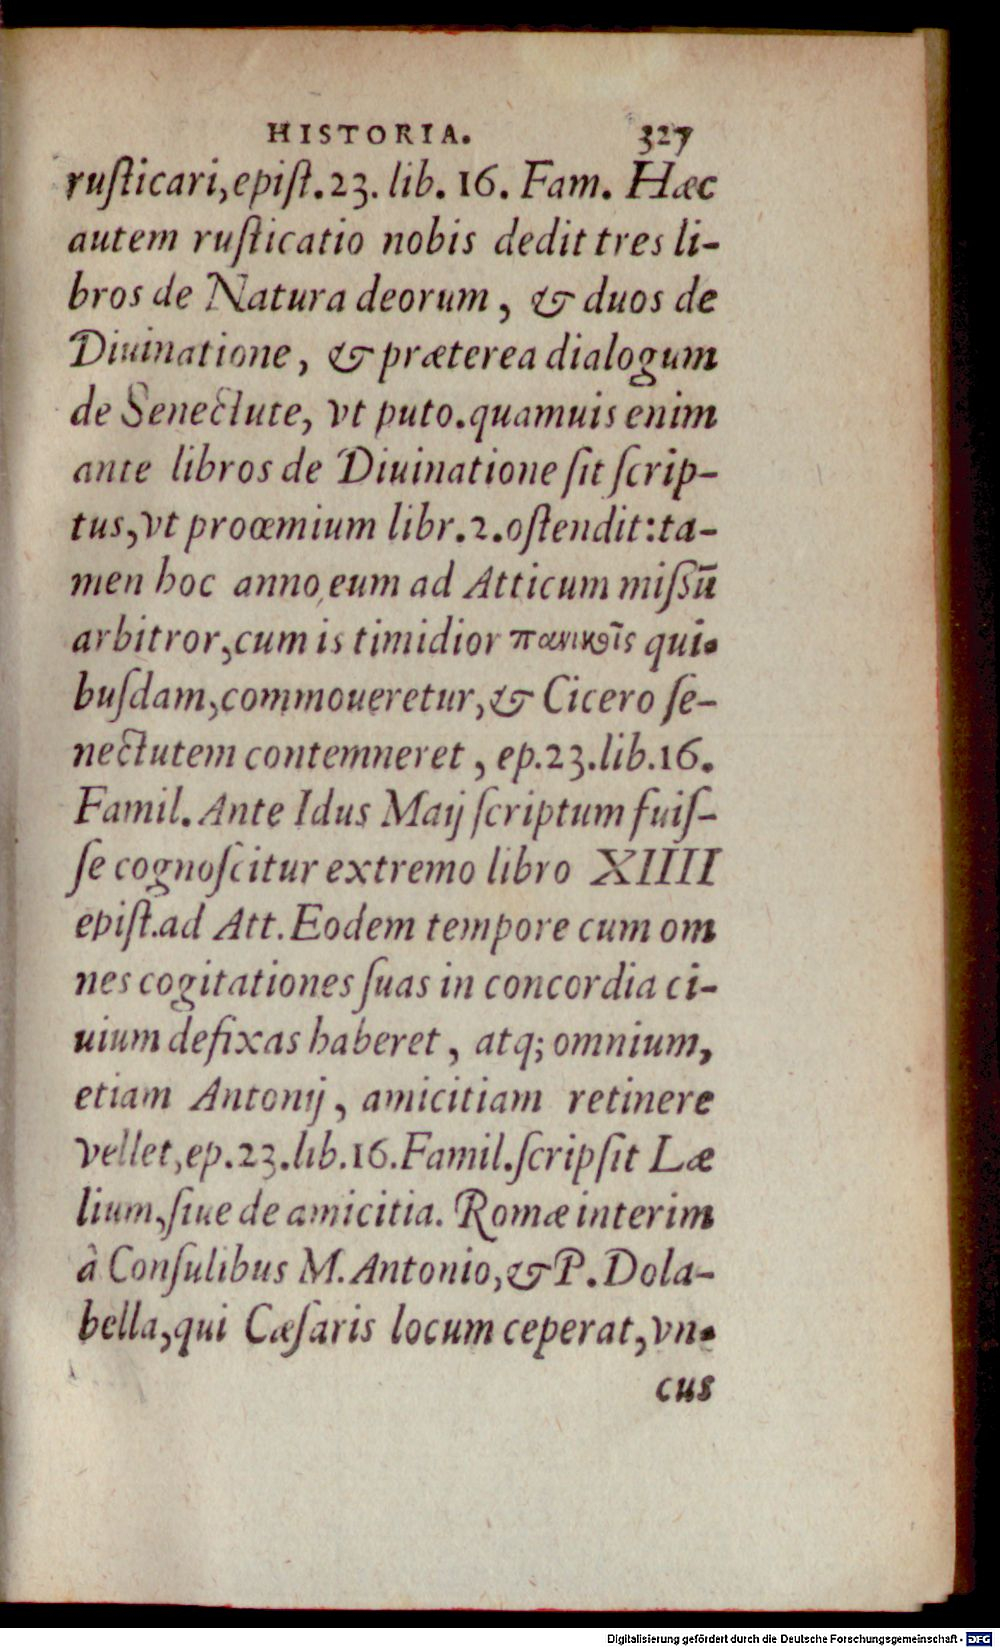 HISTORIA. 327
ruſticari, epiſt. 23. lib. 16. Fam. Hæc
autem ruſticatio nobis dedit tres li-
bros de Natura deorum, & duos de
Diuinatione, & præterea dialogum
de Senectute, vt puto. quamuis enim
ante libros de Diuinatione ſit ſcrip-
tus, vt proœmium libr. 2. oſtendit: ta-
men hoc anno eum ad Atticum miſſū
arbitror, cum is timidior πανικοῖς qui-
buſdam, commoueretur, & Cicero ſe-
nectutem contemneret, ep. 23. lib. 16.
Famil. Ante Idus Maij ſcriptum fuiſ-
ſe cognoſcitur extremo libro XIIII
epiſt. ad Att. Eodem tempore cum om
nes cogitationes ſuas in concordia ci-
uium defixas haberet, atq; omnium,
etiam Antonij, amicitiam retinere
vellet, ep. 23. lib. 16. Famil. ſcripſit Læ
lium, ſiue de amicitia. Romæ interim
à Conſulibus M. Antonio, & P. Dola-
bella, qui Cæſaris locum ceperat, vn-
cus
Digitalisierung gefördert durch die Deutsche Forschungsgemeinschaft - DFG